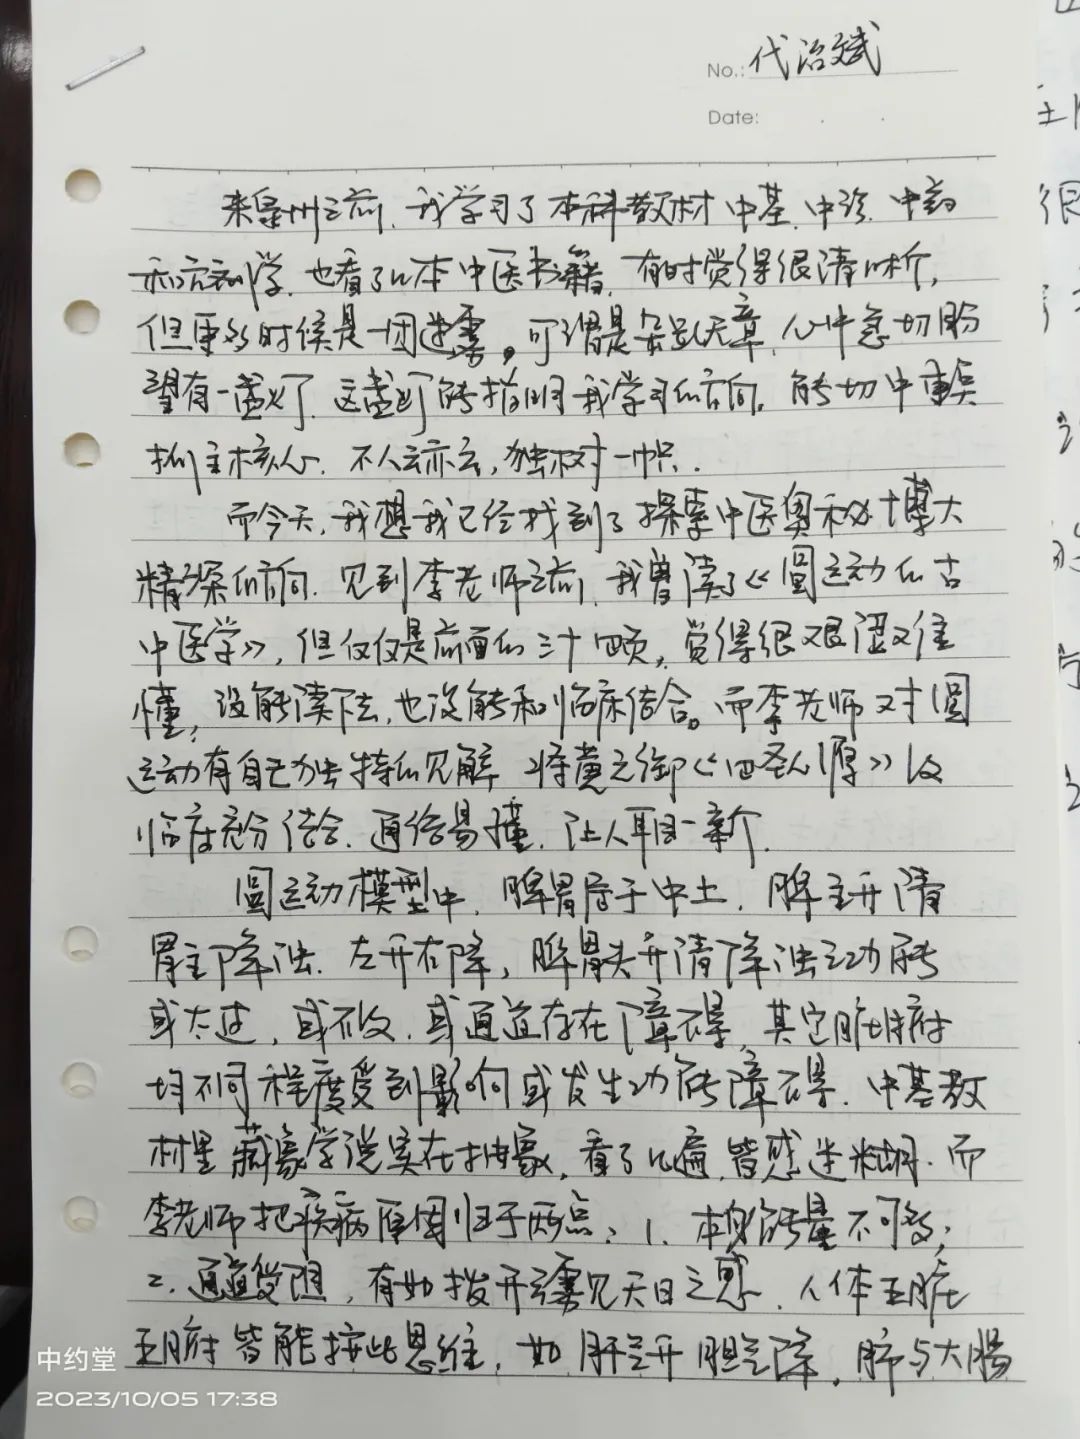 No.: 代治斌
Date:
来泉州之前,我学习了本科教材中基、中诊、中药
和方剂学,也看了几本中医书籍,有时觉得很清晰,
但更多时候是一团迷雾。可谓是杂乱无章,心中急切盼
望有一盏灯,这盏灯能指明我学习的方向,能切中要点
抓主核心,不人云亦云,独树一帜.
而今天,我想我已经找到了探索中医奥秘博大
精深的方向.见到李老师之前,我曾读了《圆运动的古
中医学》,但仅仅是前面的三十四页,觉得很艰涩又难
懂,没能读下去,也没能和临床结合。而李老师对圆
运动有自己独特的见解,将黄元御《四圣心源》及
临床充分结合.通俗易懂,让人耳目一新.
圆运动模型中,脾胃居于中土,脾主升清
胃主降浊.左升右降,脾胃失升清降浊之功能
或太过,或不及,或通道存在障碍,其它脏腑
均不同程度受到影响或发生功能障碍.中基教
材里藏象学说实在抽象,看了几遍,皆感迷糊.而
李老师把疾病原因归于两点:1.本身能量不可及;
2.通道受阻,有如拨开云雾见天日之感.人体五脏
五腑皆能按此思维,如肝气升胆气降,肺与大肠
中约堂
2023/10/05 17:38